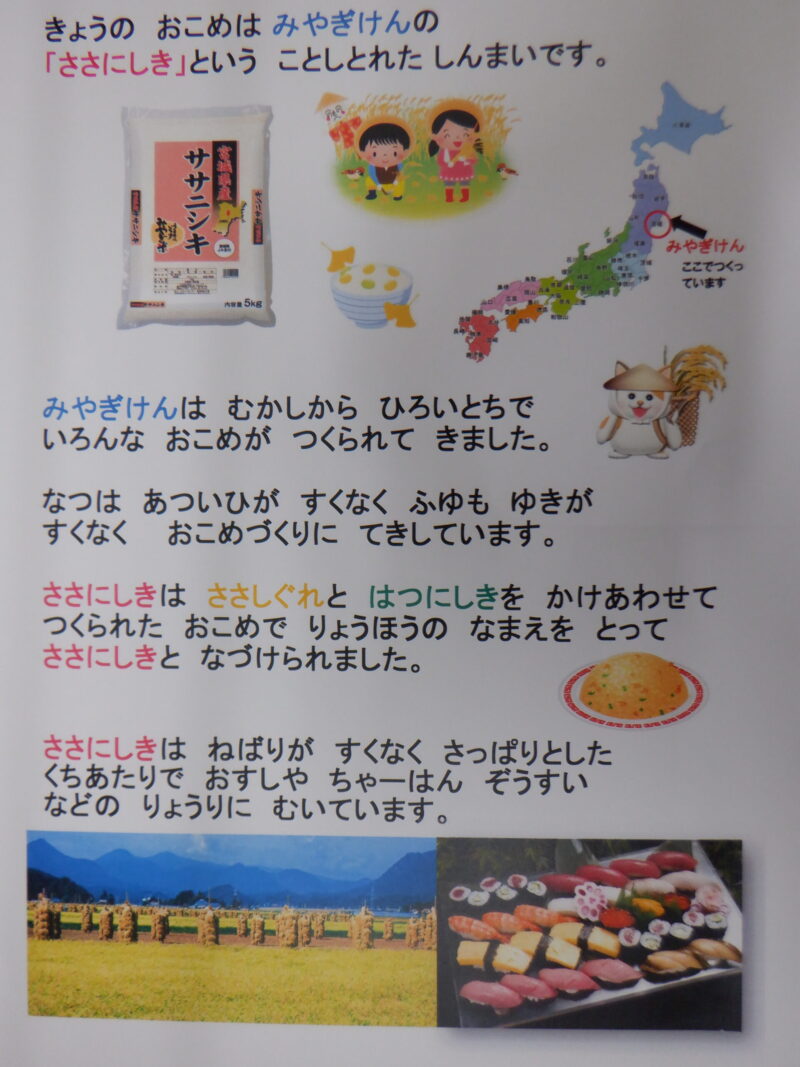 きょうの おこめは みやぎけんの
「ささにしき」という ことしとれた しんまいです。
宮城県産
ササニシキ
内容量 5kg
北海道
みやぎけん
ここでつくっ
ています
みやぎけんは むかしから ひろいとちで
いろんな おこめが つくられて きました。
なつは あついひが すくなく ふゆも ゆきが
すくなく おこめづくりに てきしています。
ささにしきは ささしぐれと はつにしきを かけあわせて
つくられた おこめで りょうほうの なまえを とって
ささにしきと なづけられました。
ささにしきは ねばりが すくなく さっぱりとした
くちあたりで おすしや ちゃーはん ぞうすい
などの りょうりに むいています。